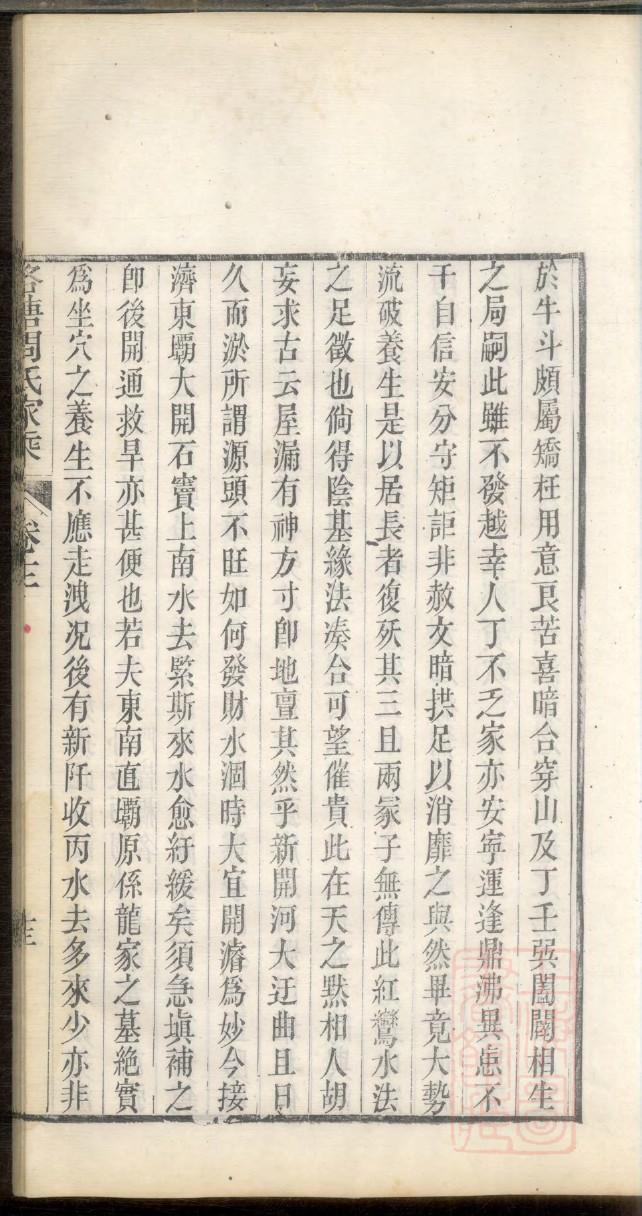 於牛斗頗屬矯枉用意良苦喜暗合穿山及丁壬巽闔闢相生
之局嗣此雖不發越幸人丁不乏家亦安寧運逢鼎沸異患不
干自信安分守矩詎非赦文暗拱足以消靡之與然畢竟大勢
流破養生是以居長者復殀其三且兩冢子無傳此紅鸞水法
之足徵也倘得陰基緣法湊合可望催貴此在天之黙相人胡
妄求古云屋漏有神方寸卽地亶其然乎新開河大迂曲且日
久而淤所謂源頭不旺如何發財水涸時大宜開濬爲妙今接
濟東壩大開石竇上南水去緊斯來水愈紆緩矣須急塡補之
卽後開通救旱亦甚便也若夫東南直壩原係龍家之墓絶實
爲坐穴之養生不應走洩况後有新阡收丙水去多來少亦非
塘周氏家乘